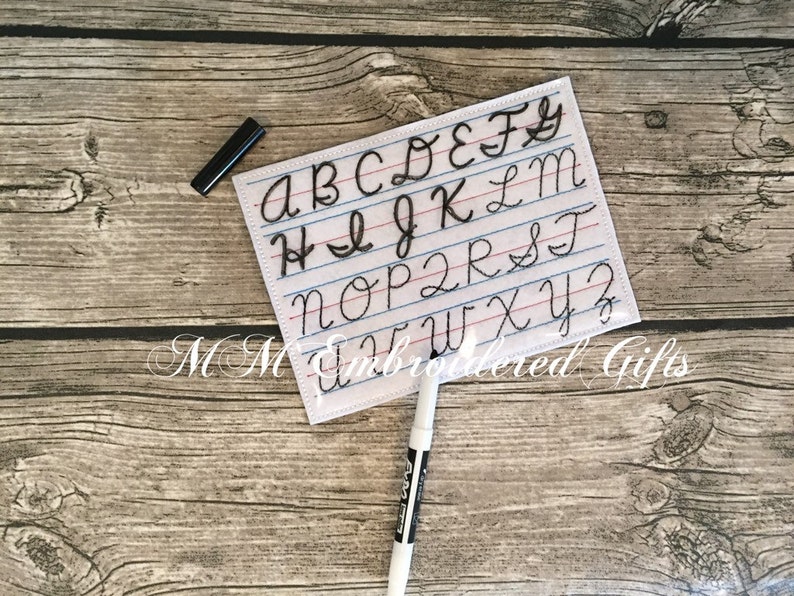 A B C D E F G
H I J K L M
N O P Q R S T
U V W X Y Z
MM Embroidered Gifts
EXPO